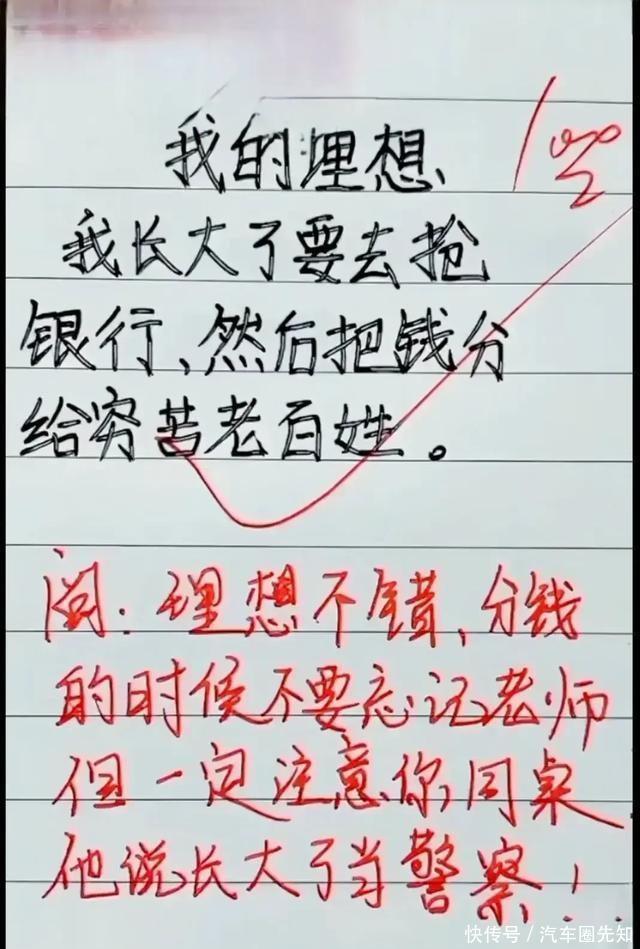 我的理想
100
我长大了要去抢
银行、然后把钱分
给穷苦老百姓。
阅:理想不错,分钱
的时候不要忘记老师
但一定注意你同桌
他说长大了当警察!
快传号/汽车圈先知